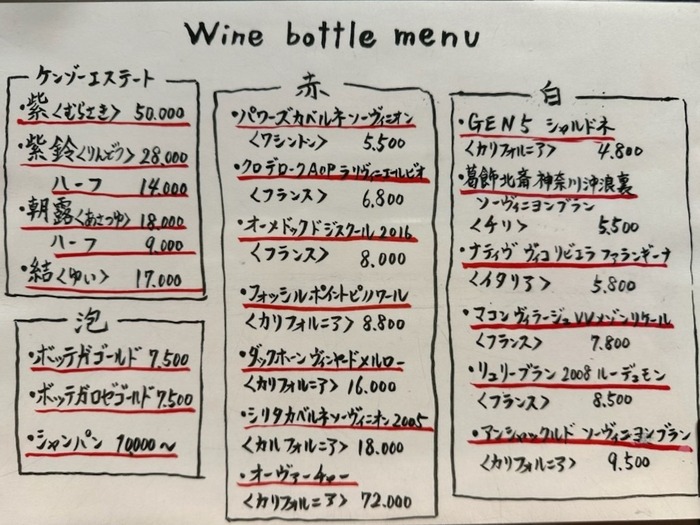 Wine bottle menu
ケンゾーエステート
・紫〈むらさき〉 50.000
・紫鈴〈りんどう〉 28.000
ハーフ 14.000
・朝露〈あさつゆ〉 18.000
ハーフ 9.000
・結〈ゆい〉 17.000
泡
・ボッテガゴールド 7.500
・ボッテガロゼゴールド 7.500
・シャンパン 10000〜
赤
・パワーズカベルネソーヴィニオン
〈ワシントン〉 5.500
・クロデロークAOPラリヴィエールビオ
〈フランス〉 6.800
・オーメドックドジスクール 2016
〈フランス〉 8.000
・フォッシルポイントピノノワール
〈カリフォルニア〉 8.800
・ダックホーンヴィンヤードメルロー
〈カリフォルニア〉 16.000
・シリタカベルネソーヴィニオン 2005
〈カルフォルニア〉 18.000
・オーヴァーチャー
〈カリフォルニア〉 72.000
白
・GEN5 シャルドネ
〈カリフォルニア〉 4.800
・葛飾北斎 神奈川沖浪裏
ソーヴィニヨンブラン
〈チリ〉 5.500
・ナティヴ ヴィコ リビエラ ファランギーナ
〈イタリア〉 5.800
・マコン ヴィラージュ VV メゾンリケール
〈フランス〉 7.800
・リュリーブラン 2008 ルーデュモン
〈フランス〉 8.500
・アンシャックルド ソーヴィニヨンブラン
〈カリフォルニア〉 9.500